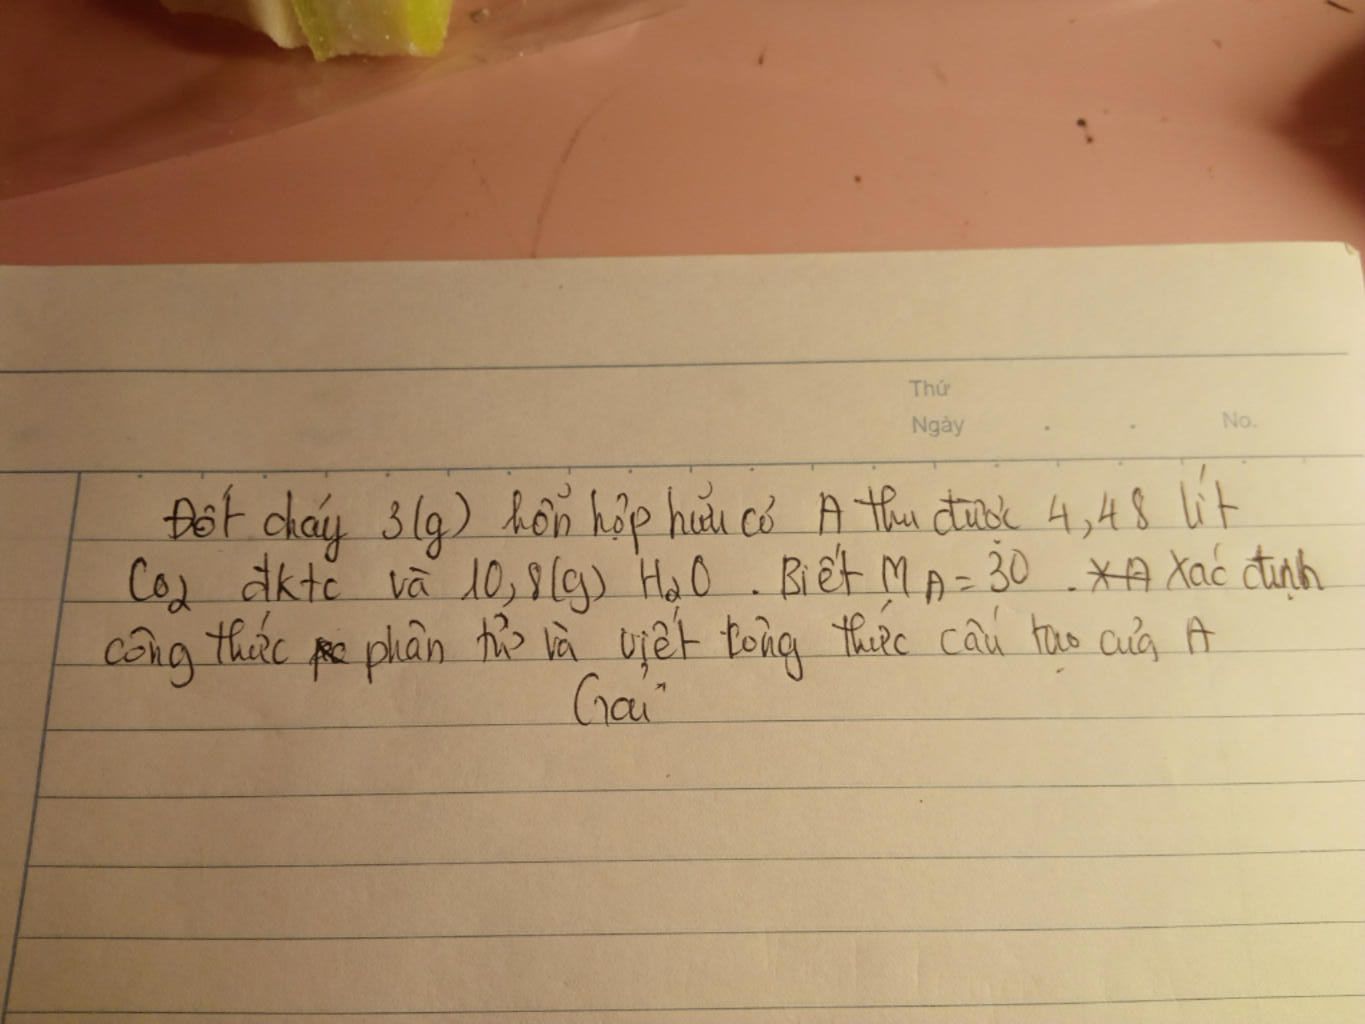 Thứ
Ngày
No.
Đốt cháy 3(g) hổn hợp hưũ cơ A thu được 4,48 lít
CO2 đktc và 10,8(g) H2O. Biết MA = 30. Xác định
công thức phân tử và viết công thức cấu tạo của A
Giải